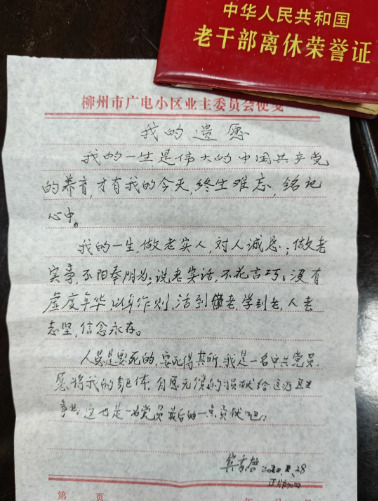 中华人民共和国
老干部离休荣誉证
柳州市广电小区业主委员会便笺
我的遗愿
我的一生是伟大的中国共产党
的养育,才有我的今天,终生难忘,铭记
心中。
我的一生做老实人,对人诚恳;做老
实事,不阳奉阴为;说老实话,不花言巧;没有
虚度年华,以身作则,活到老,学到老,人老
志坚,信念永存。
人总是要死的,要死得其所,我是一名中共党员,
愿将我的躯体,自愿无偿的捐献给
事业,这也是一名党员最后的一点贡献吧!
28
第 页